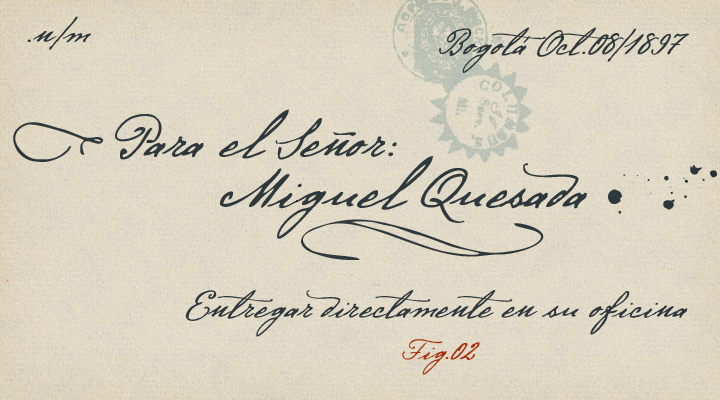 .u/m
Bogotá Oct.08/1897
COLUMBUS.
Para el Señor:
Miguel Quesada
Entregar directamente en su oficina
Fig.02